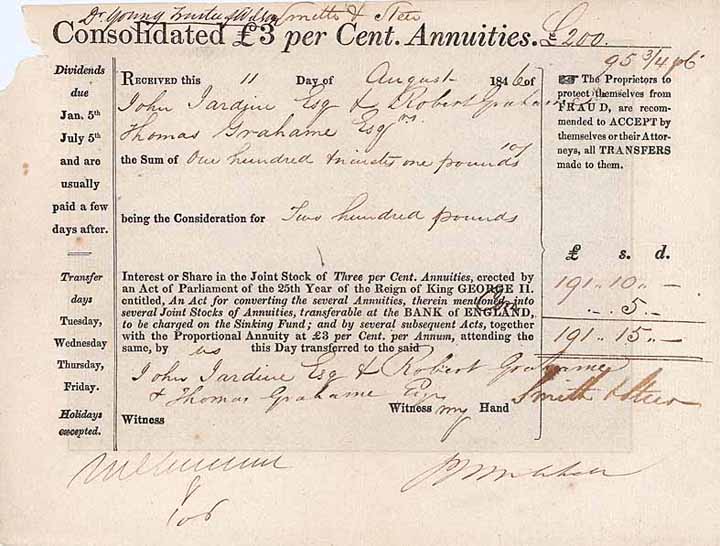 Dr. Young Trustee & Wilson Smith & Steer
Consolidated £3 per Cent. Annuities. £200.
95 3/4 pCt
Dividends
due
Jan. 5th
July 5th
and are
usually
paid a few
days after.
Transfer
days
Tuesday,
Wednesday
Thursday,
Friday.
Holidays
excepted.
RECEIVED this 11 Day of August 1846 of
John Jardine Esq & Robert Grahame &
Thomas Grahame Esqrs.
the Sum of One hundred & ninety one pounds 10/
being the Consideration for Two hundred pounds
Interest or Share in the Joint Stock of Three per Cent. Annuities, erected by
an Act of Parliament of the 25th Year of the Reign of King GEORGE II.
entitled, An Act for converting the several Annuities, therein mentioned, into
several Joint Stocks of Annuities, transferable at the BANK of ENGLAND,
to be charged on the Sinking Fund; and by several subsequent Acts, together
with the Proportional Annuity at £3 per Cent. per Annum, attending the
same, by us this Day transferred to the said
John Jardine Esq & Robert Grahame
& Thomas Grahame Esqrs
Witness my Hand
Witness
☞ The Proprietors to
protect themselves from
FRAUD, are recom-
mended to ACCEPT by
themselves or their Attor-
neys, all TRANSFERS
made to them.
£ s. d.
191 .. 10 .. —
.. 5 .. —
191 .. 15 .. —
Smith & Steer